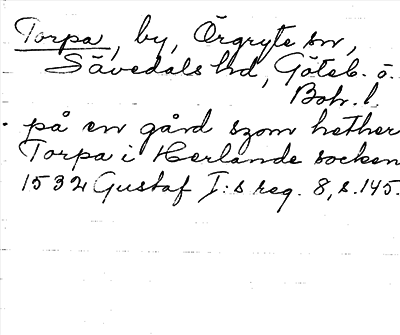 Torpa, by, Örgryte sn,
Sävedals hd, Göteb. o.
Boh. l.
på en gård szom hether
Torpa i Herlande socken
1532 Gustaf I:s reg. 8, s. 145.